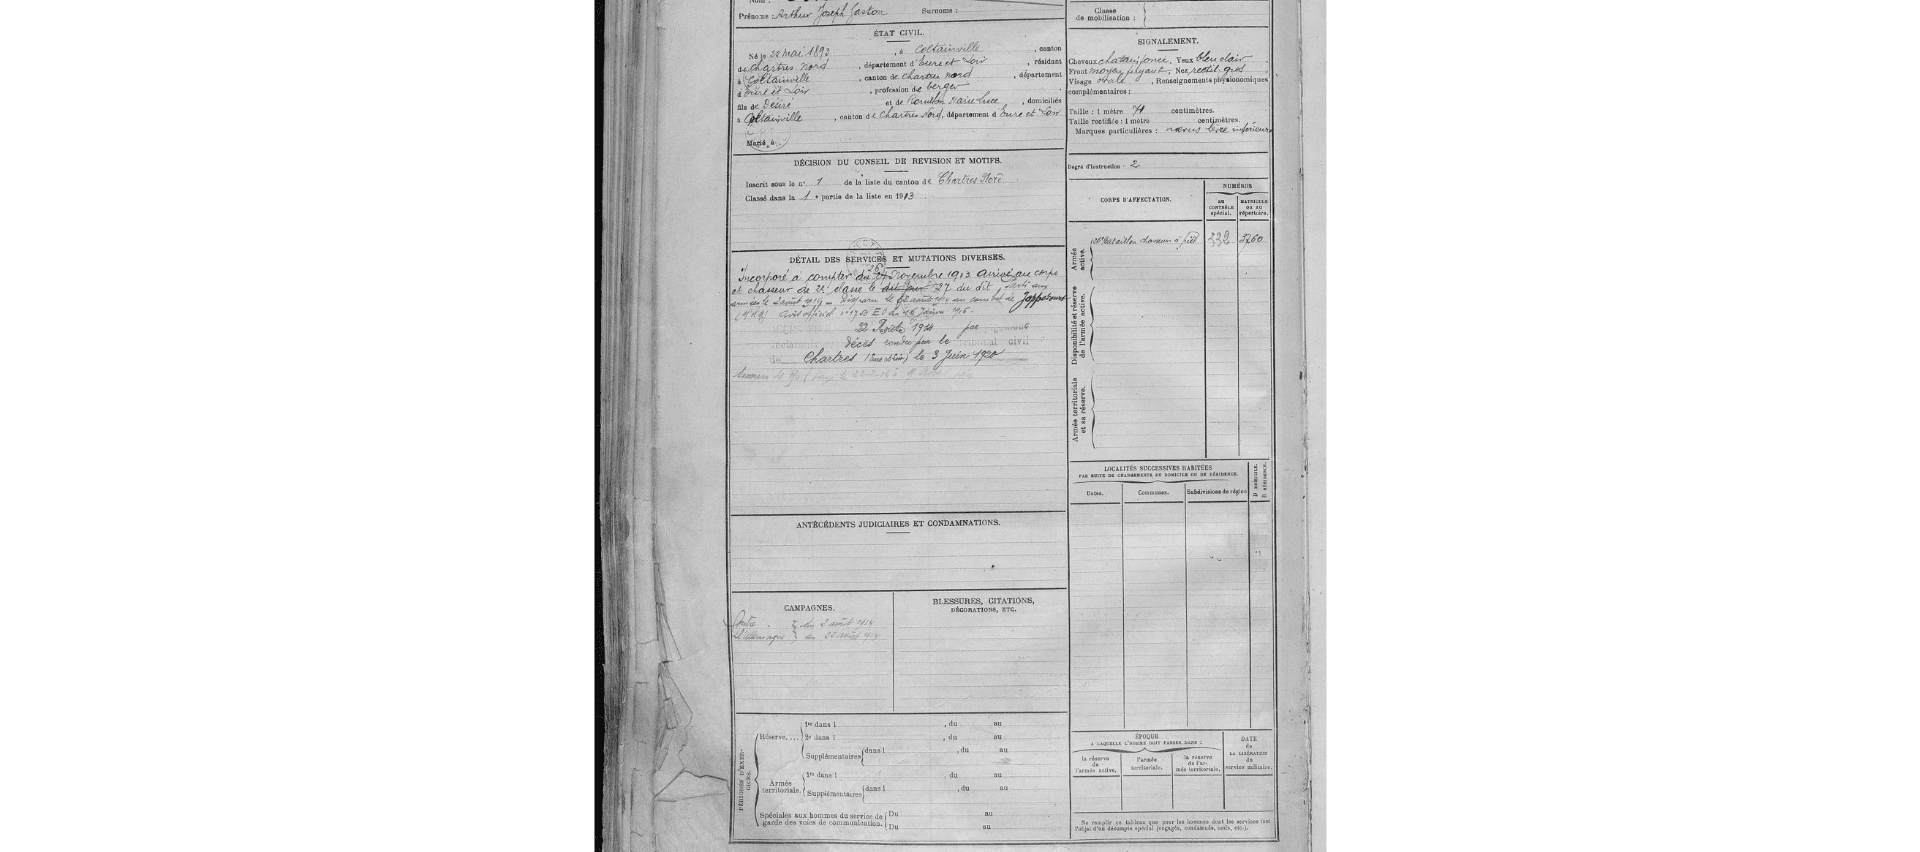 Prénoms : Arthur Joseph Gaston Surnoms :
ÉTAT CIVIL.
Né le 22 mai 1893, à Coltainville, canton
de Chartres Nord, département d'Eure et Loir, résidant
à Coltainville, canton de Chartres Nord, département
d'Eure et Loir, profession de berger
fils de Désiré et de Marie Luce, domiciliés
à Coltainville, canton de Chartres Nord, département d'Eure et Loir
Marié à
DÉCISION DU CONSEIL DE REVISION ET MOTIFS.
Inscrit sous le n° 1 de la liste du canton de Chartres Nord
Classé dans la 1e partie de la liste en 1913.
DÉTAIL DES SERVICES ET MUTATIONS DIVERSES.
Incorporé à compter du 26 Novembre 1913 arrivé au corps
et chasseur de 2e classe le dit jour 27 du dit Parti aux
armées le 2 août 1914 – Disparu le août au combat de Joppécourt
(M&M) avis officiel du janvier 1916.
22 Août 1914 par
Décès rendu par le tribunal civil
de Chartres (Eure et Loir) le 3 Juin 1920
ANTÉCÉDENTS JUDICIAIRES ET CONDAMNATIONS.
CAMPAGNES.
Contre du 2 août 1914
l'Allemagne au 22 août 1914
BLESSURES, CITATIONS,
DÉCORATIONS, ETC.
PÉRIODES D'EXERCICES.
Réserve.... 1re dans l , du au
2e dans l , du au
Supplémentaires dans l , du au
Armée territoriale. 1re dans l , du au
Supplémentaires dans l , du au
Spéciales aux hommes du service de Du au
garde des voies de communication. Du au
Classe
de mobilisation :
SIGNALEMENT.
Cheveux chatain foncé, Yeux bleu clair
Front moyen fuyant, Nez rectil. gros
Visage ovale, Renseignements physionomiques
complémentaires :
Taille : 1 mètre 71 centimètres.
Taille rectifiée : 1 mètre centimètres.
Marques particulières : nævus lèvre inférieure
Degré d'instruction : 2
CORPS D'AFFECTATION.
NUMÉROS
AU CONTRÔLE spécial.
MATRICULE ou au répertoire.
Armée active.
Bataillon chasseurs à pied 332 3760
Disponibilité et réserve de l'armée active.
Armée territoriale et sa réserve.
LOCALITÉS SUCCESSIVES HABITÉES
PAR SUITE DE CHANGEMENTS DE DOMICILE OU DE RÉSIDENCE.
Dates. Communes. Subdivisions de région D domicile. R résidence.
ÉPOQUE
A LAQUELLE L'HOMME DOIT PASSER DANS :
la réserve de l'armée active.
l'armée territoriale.
la réserve de l'armée territoriale.
DATE
de
LA LIBÉRATION
du
service militaire.
Ne remplir ce tableau que pour les hommes dont les services font
l'objet d'un décompte spécial (engagés, condamnés, omis, etc.).